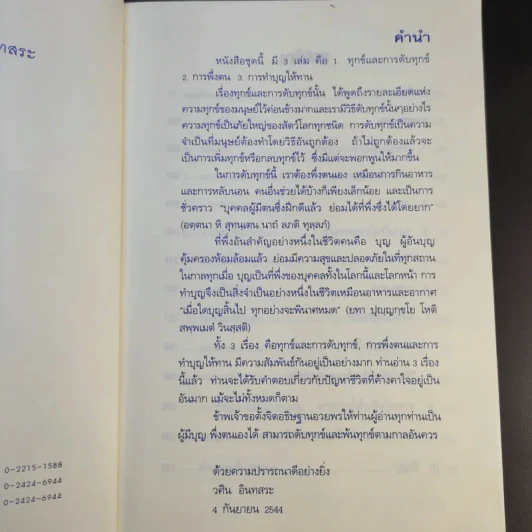 ทสระ
0-2215-1588
0-2424-6944
0-2424-6944
คำนำ
หนังสือชุดนี้ มี 3 เล่ม คือ 1. ทุกข์และการดับทุกข์
2. การพึ่งตน 3. การทำบุญให้ทาน
เรื่องทุกข์และการดับทุกข์นั้น ได้พูดถึงรายละเอียดแห่ง
ความทุกข์ของมนุษย์ไว้ค่อนข้างมากและเรามีวิธีดับทุกข์นั้นๆอย่างไร
ความทุกข์เป็นภัยใหญ่ของสัตว์โลกทุกชนิด การดับทุกข์เป็นความ
จำเป็นที่มนุษย์ต้องทำโดยวิธีอันถูกต้อง ถ้าไม่ถูกต้องแล้วจะ
เป็นการเพิ่มทุกข์หรือกลบทุกข์ไว้ ซึ่งมีแต่จะพอกพูนให้มากขึ้น
ในการดับทุกข์นี้ เราต้องพึ่งตนเอง เหมือนการกินอาหาร
และการหลับนอน คนอื่นช่วยได้บ้างก็เพียงเล็กน้อย และเป็นการ
ชั่วคราว "บุคคลผู้มีตนซึ่งฝึกดีแล้ว ย่อมได้ที่พึ่งซึ่งได้โดยยาก"
(อตฺตนา หิ สุทนฺเตน นาถํ ลภติ ทุลฺลภํ)
ที่พึ่งอันสำคัญอย่างหนึ่งในชีวิตคนคือ บุญ ผู้อันบุญ
คุ้มครองห้อมล้อมแล้ว ย่อมมีความสุขและปลอดภัยในที่ทุกสถาน
ในกาลทุกเมื่อ บุญเป็นที่พึ่งของบุคคลทั้งในโลกนี้และโลกหน้า การ
ทำบุญจึงเป็นสิ่งจำเป็นอย่างหนึ่งในชีวิตเหมือนอาหารและอากาศ
"เมื่อใดบุญสิ้นไป ทุกอย่างจะพินาศหมด" (ยทา ปุญฺญกฺขโย โหติ
สพฺพเมตํ วินสฺสติ)
ทั้ง 3 เรื่อง คือทุกข์และการดับทุกข์, การพึ่งตนและการ
ทำบุญให้ทาน มีความสัมพันธ์กันอยู่เป็นอย่างมาก ท่านอ่าน 3 เรื่อง
นี้แล้ว ท่านจะได้รับคำตอบเกี่ยวกับปัญหาชีวิตที่ค้างคาใจอยู่เป็น
อันมาก แม้จะไม่ทั้งหมดก็ตาม
ข้าพเจ้าขอตั้งจิตอธิษฐานอวยพรให้ท่านผู้อ่านทุกท่านเป็น
ผู้มีบุญ พึ่งตนเองได้ สามารถดับทุกข์และพ้นทุกข์ตามกาลอันควร
ด้วยความปรารถนาดีอย่างยิ่ง
วศิน อินทสระ
4 กันยายน 2544